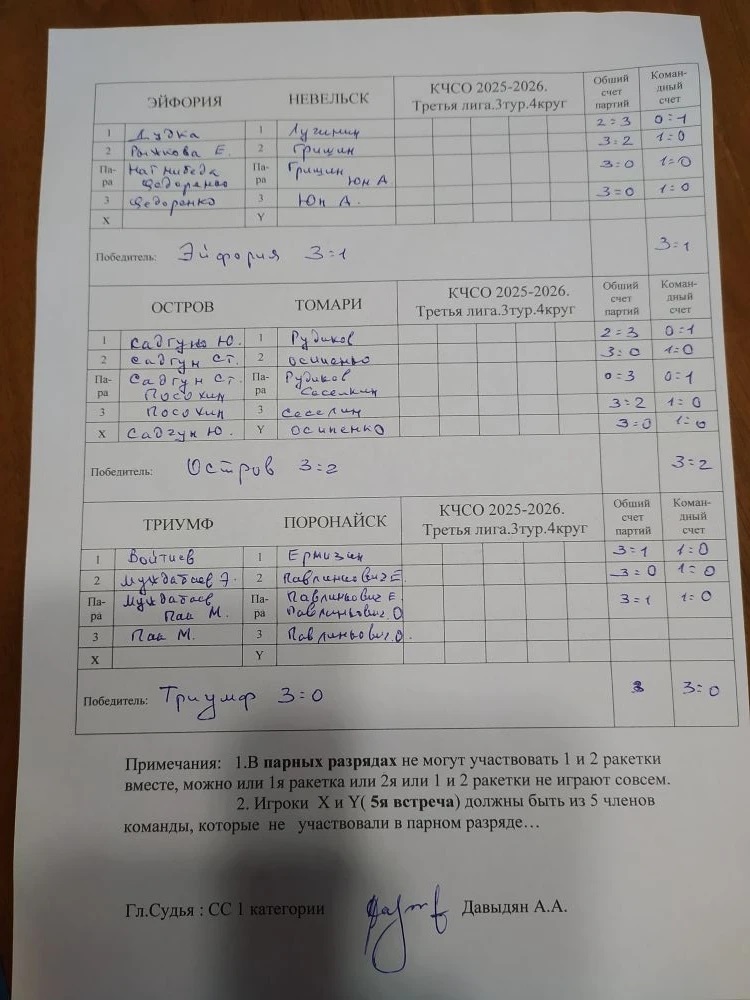 ЭЙФОРИЯ НЕВЕЛЬСК КЧСО 2025-2026. Третья лига.3тур.4круг Общий счет партий Коман-дный счет
1 Дудка 1 Лугинин 2=3 0=1
2 Рыжкова Е. 2 Гришин 3=2 1=0
Па-ра 
Щедоренко Па-ра Гришин Юн А 3=0 1=0
3 Щедоренко 3 Юн А. 3=0 1=0
X Y
Победитель: Эйфория 3=1 3=1
ОСТРОВ ТОМАРИ КЧСО 2025-2026. Третья лига.3тур.4круг Общий счет партий Коман-дный счет
1 Садгун Ю. 1 Рудиков 2=3 0=1
2 Садгун Ст. 2 Осипенко 3=0 1=0
Па-ра Садгун Ст. Посохин Па-ра Рудиков 0=3 0=1
3 Посохин 3 3=2 1=0
X Садгун Ю. Y Осипенко 3=0 1=0
Победитель: Остров 3=2 3=2
ТРИУМФ ПОРОНАЙСК КЧСО 2025-2026. Третья лига.3тур.4круг Общий счет партий Коман-дный счет
1 Войтиев 1 Ермизин 3=1 1=0
2 Э. 2 Павлинкович Е. 3=0 1=0
Па-ра Пак М. Па-ра Павлинькович Е. Павлинькович О 3=1 1=0
3 Пак М. 3 Павлинькович О.
X Y
Победитель: Триумф 3=0 3 3=0
Примечания: 1.В парных разрядах не могут участвовать 1 и 2 ракетки
вместе, можно или 1я ракетка или 2я или 1 и 2 ракетки не играют совсем.
2. Игроки X и Y( 5я встреча) должны быть из 5 членов
команды, которые не участвовали в парном разряде…
Гл.Судья : СС 1 категории Давыдян А.А.